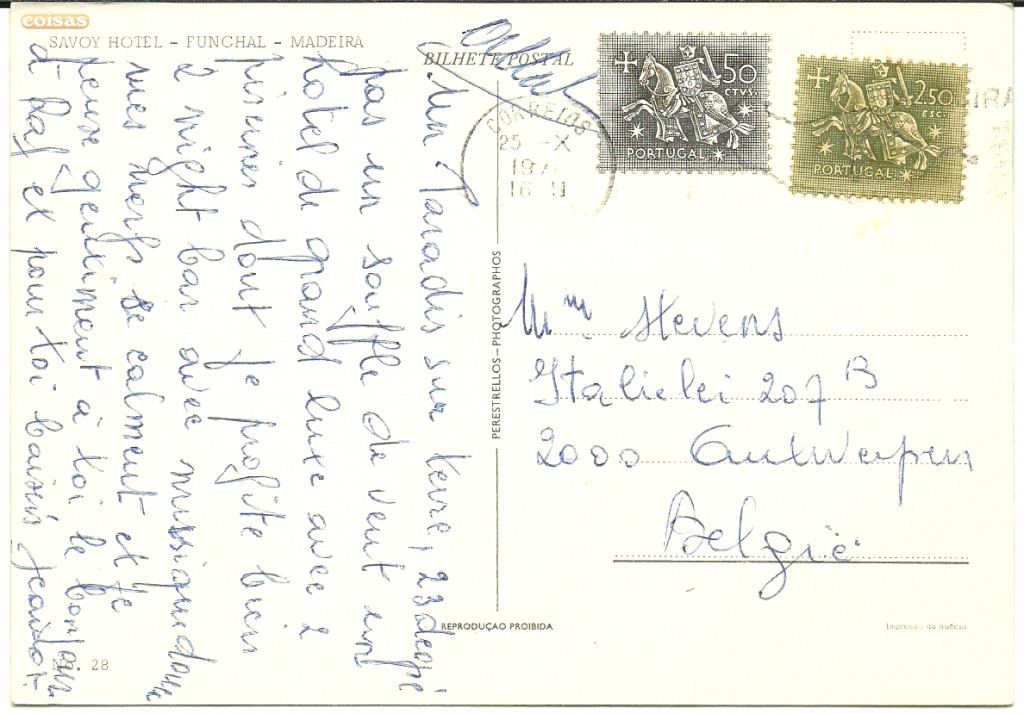 coisas
SAVOY HOTEL - FUNCHAL - MADEIRA
BILHETE POSTAL
Un Paradis sur terre, 23 degré
pas un souffle de vent un
hotel de grand luxe avec 2
piscines dont je profite bien
2 night bar avec musique donc
mes nerfs se calment et je
pense gentiment à toi le bonjour
à Raf et pour toi baisers
No. 28
PERESTRELLOS-PHOTOGRAPHOS
REPRODUÇÃO PROIBIDA
CORREIOS
25 -X
197
16
50
CTVS
PORTUGAL
2.50
ESC.
PORTUGAL
Mme Stevens
Italielei 207 B
2000 Antwerpen
België